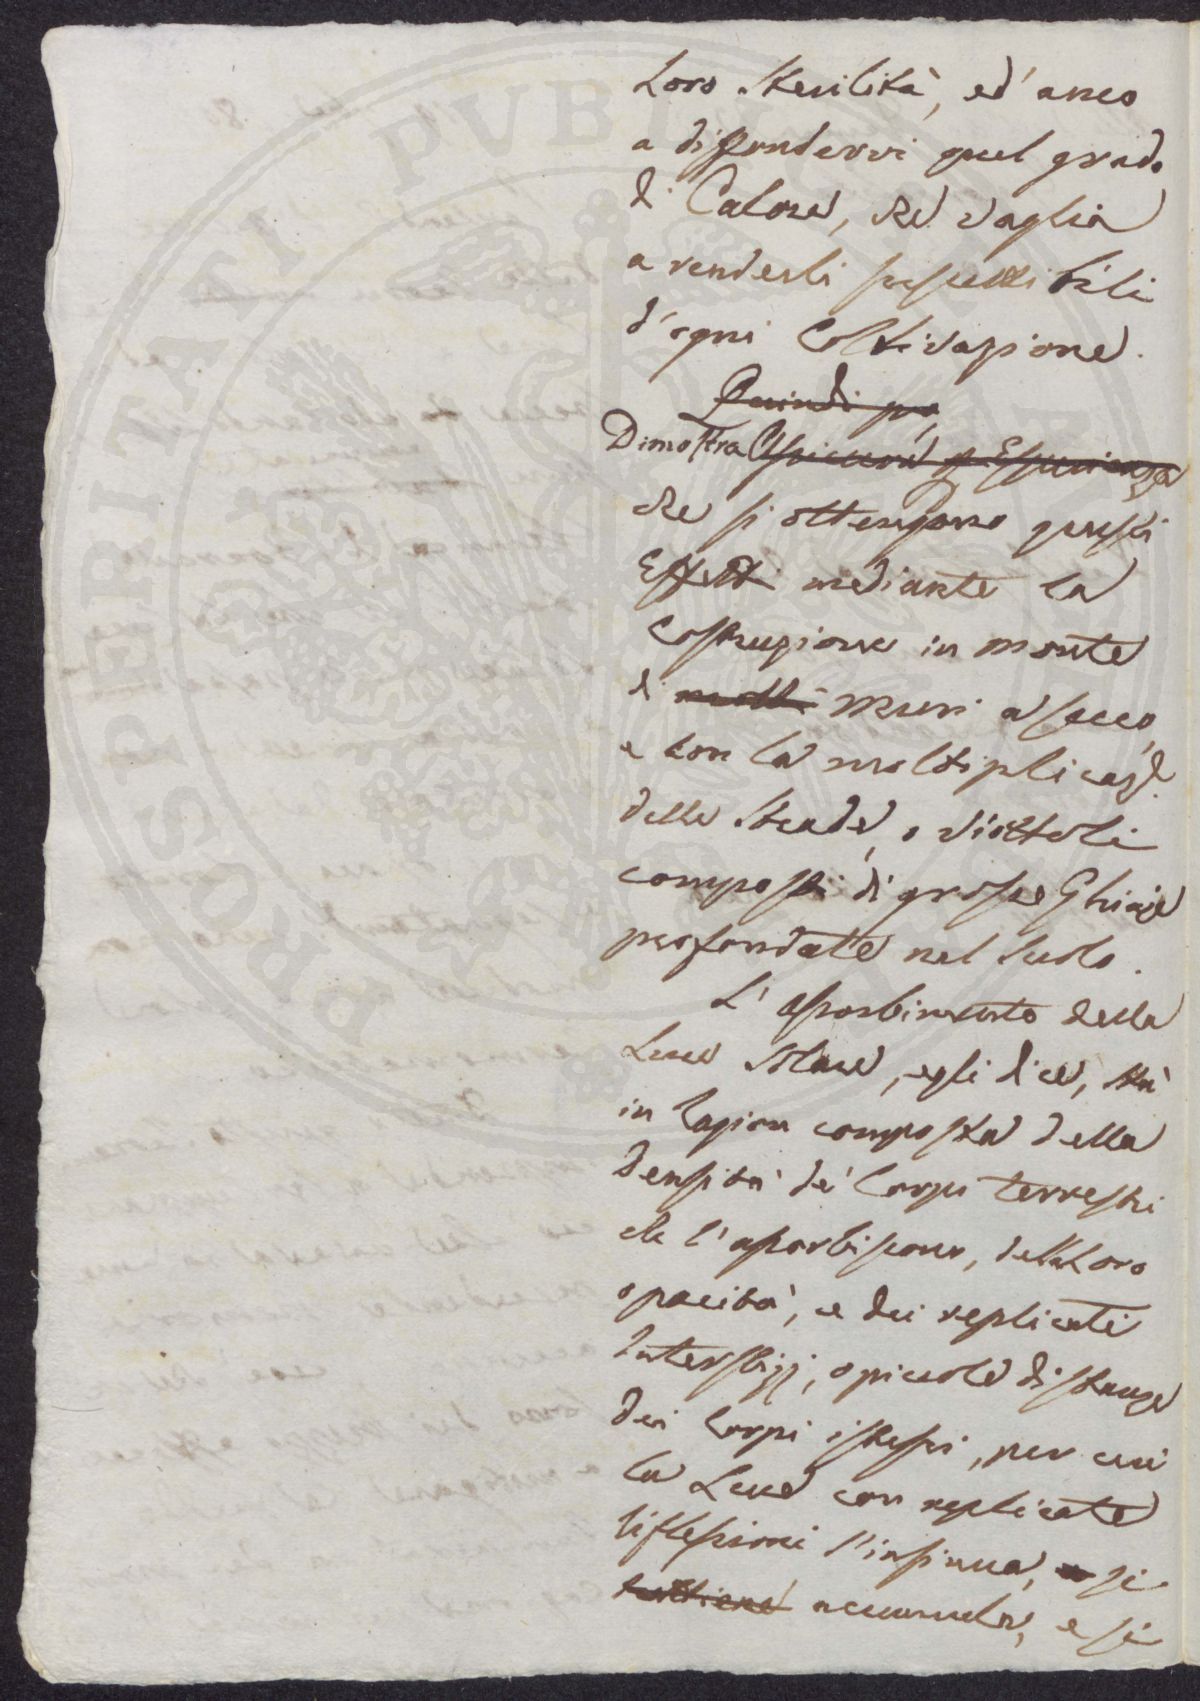 Loro sterilità, ed' anco
a diffondervi quel grado
di Calore, che vaglia
a renderli suscettibili
d'ogni Coltivazione.
Quindi pa
Dimostra Assicura p. Esperienza
che si ottengono questi
Effetti mediante la
Costruzione in monte
di molti Muri a secco,
e con la moltiplicaz.e
delle Strade, o Viottoli
composti di grosse Ghiaje
profondate nel Suolo.
L'assorbimento della
Luce Solare, egli dice, stà
in ragion composta della
Densità de' Corpi terrestri
che l'assorbiscono, della Loro
opacità, e dei replicati
Interstizj, o piccole distanze
dei Corpi istessi, per cui
la Luce con replicate
riflessioni s'insinua, si
trattiene accumula, e si
PROSPERITATI PVBLICAE